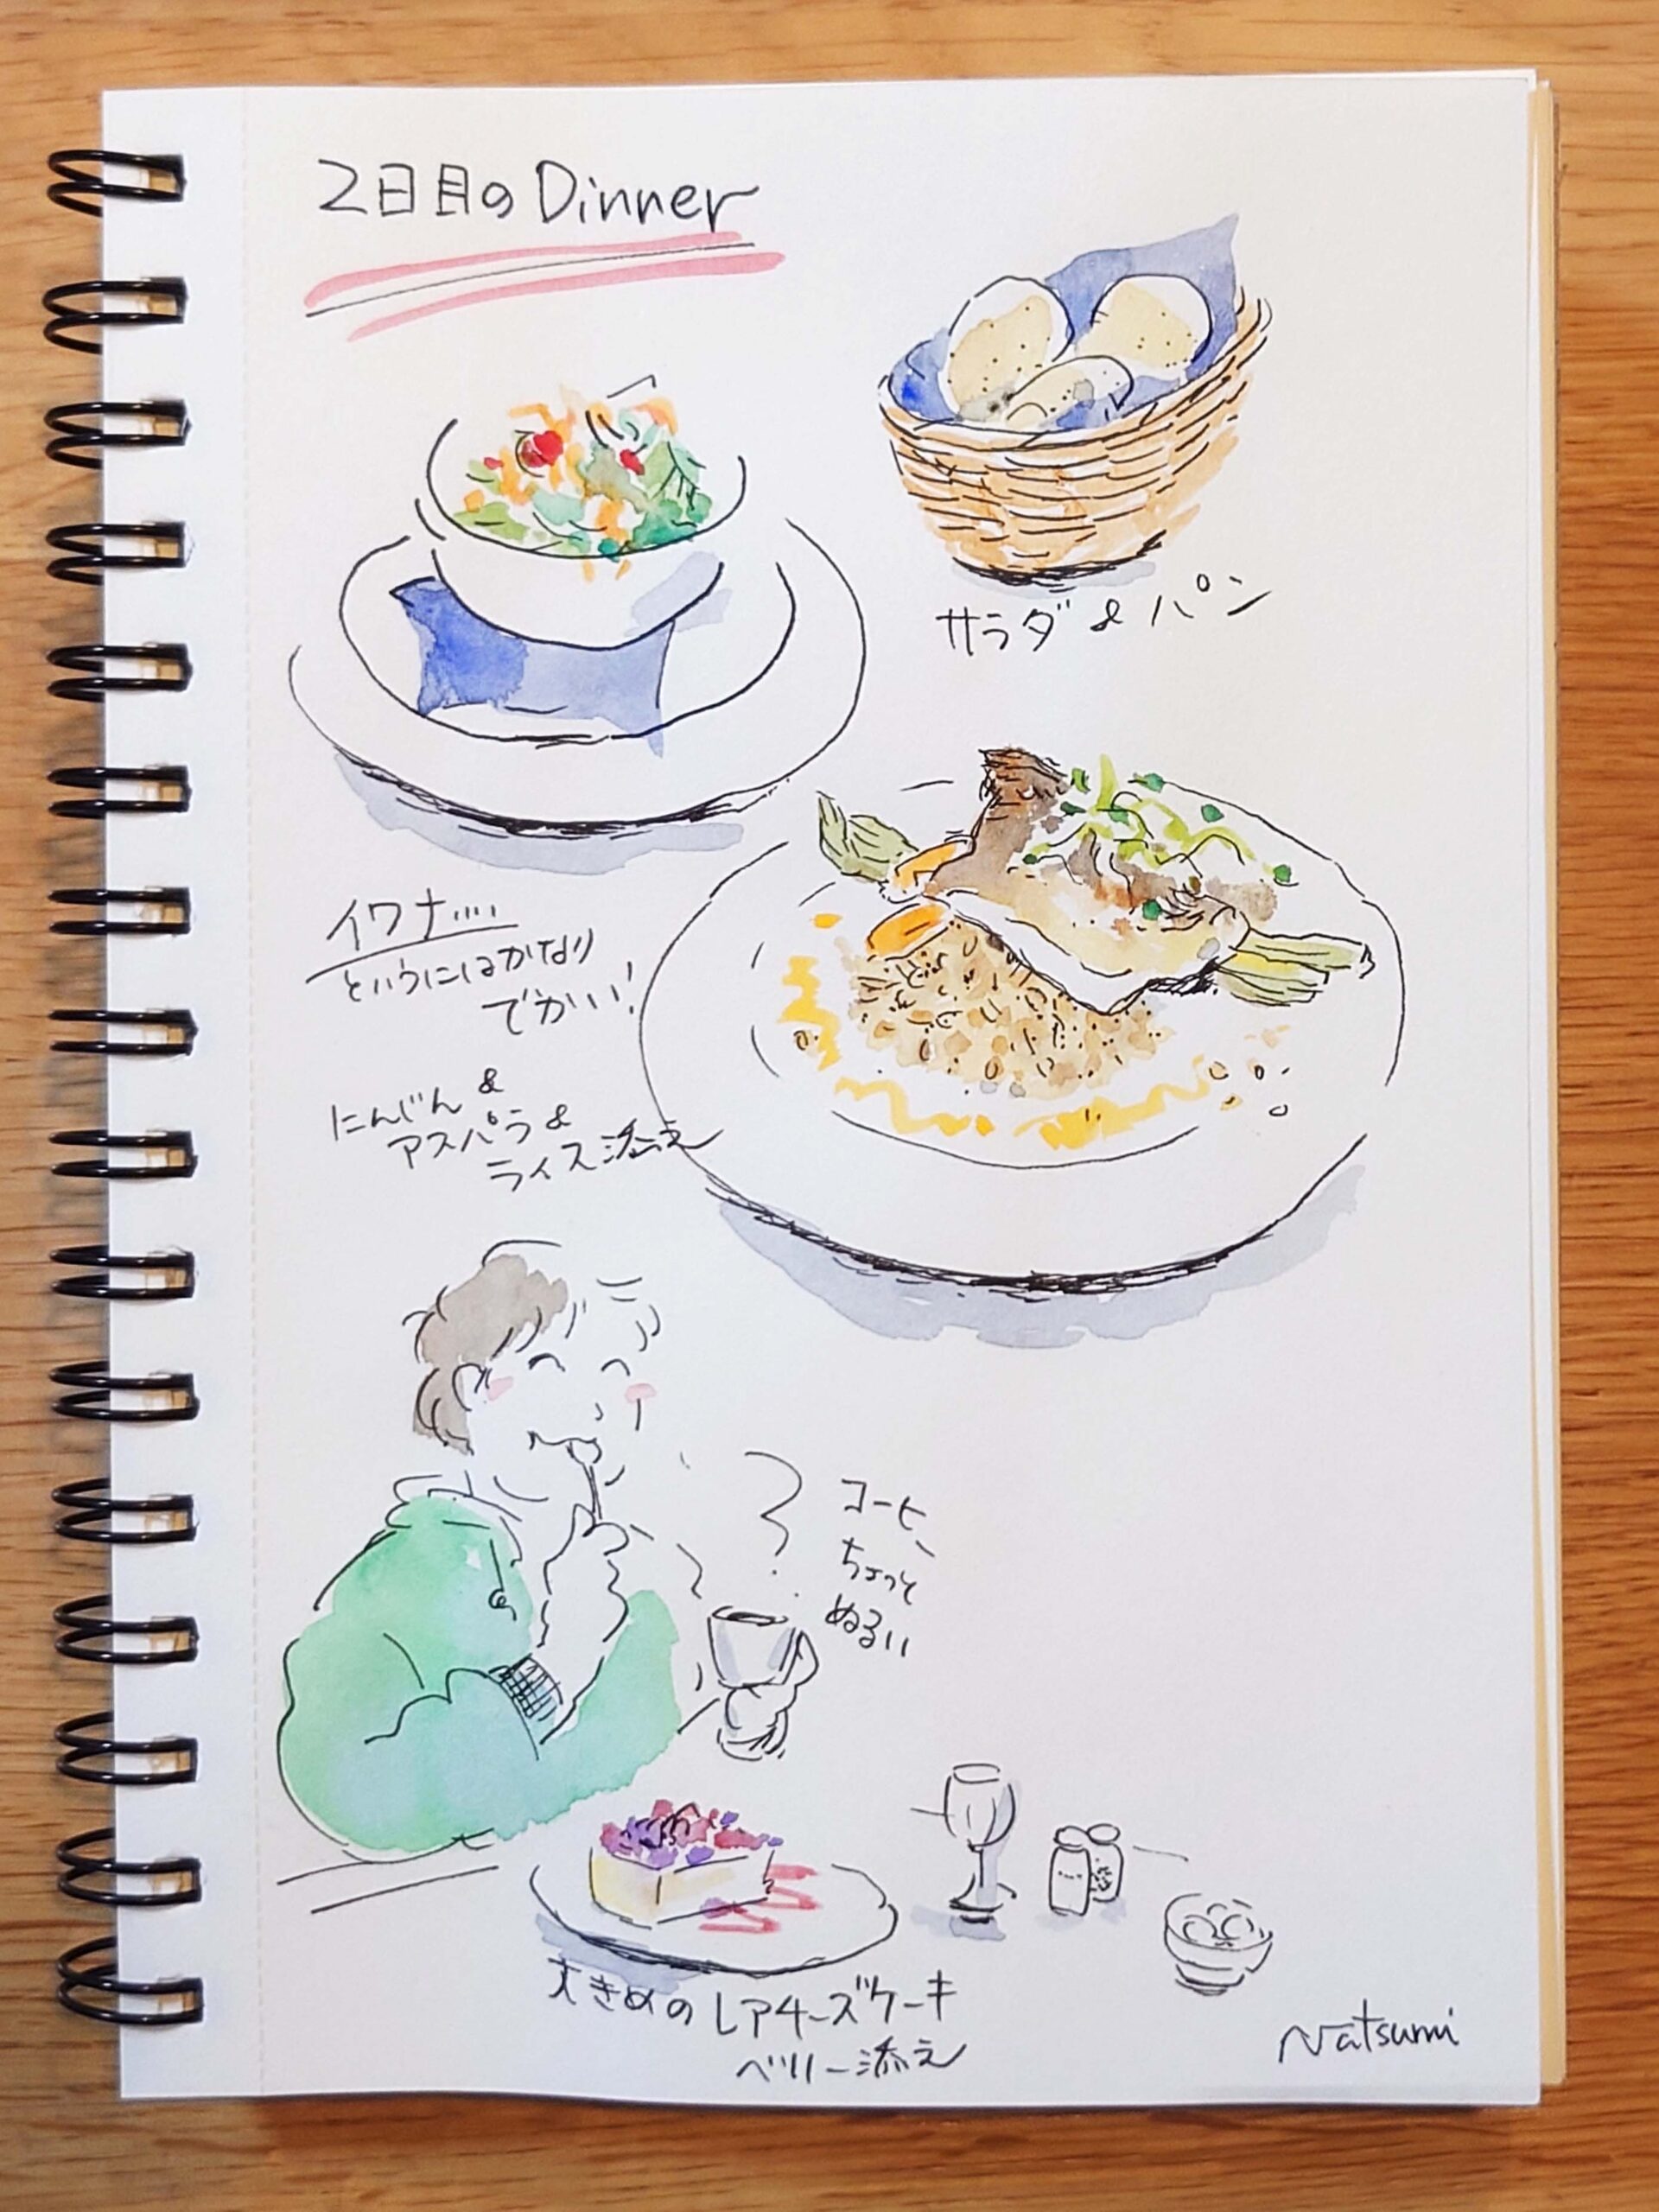 2日目のDinner
サラダ & パン
イワナ....
というにはかなり
でかい!
にんじん &
アスパラ &
ライス添え
コーヒー
ちょっと
ぬるい
大きめのレアチーズケーキ
ベリー添え
Natsumi